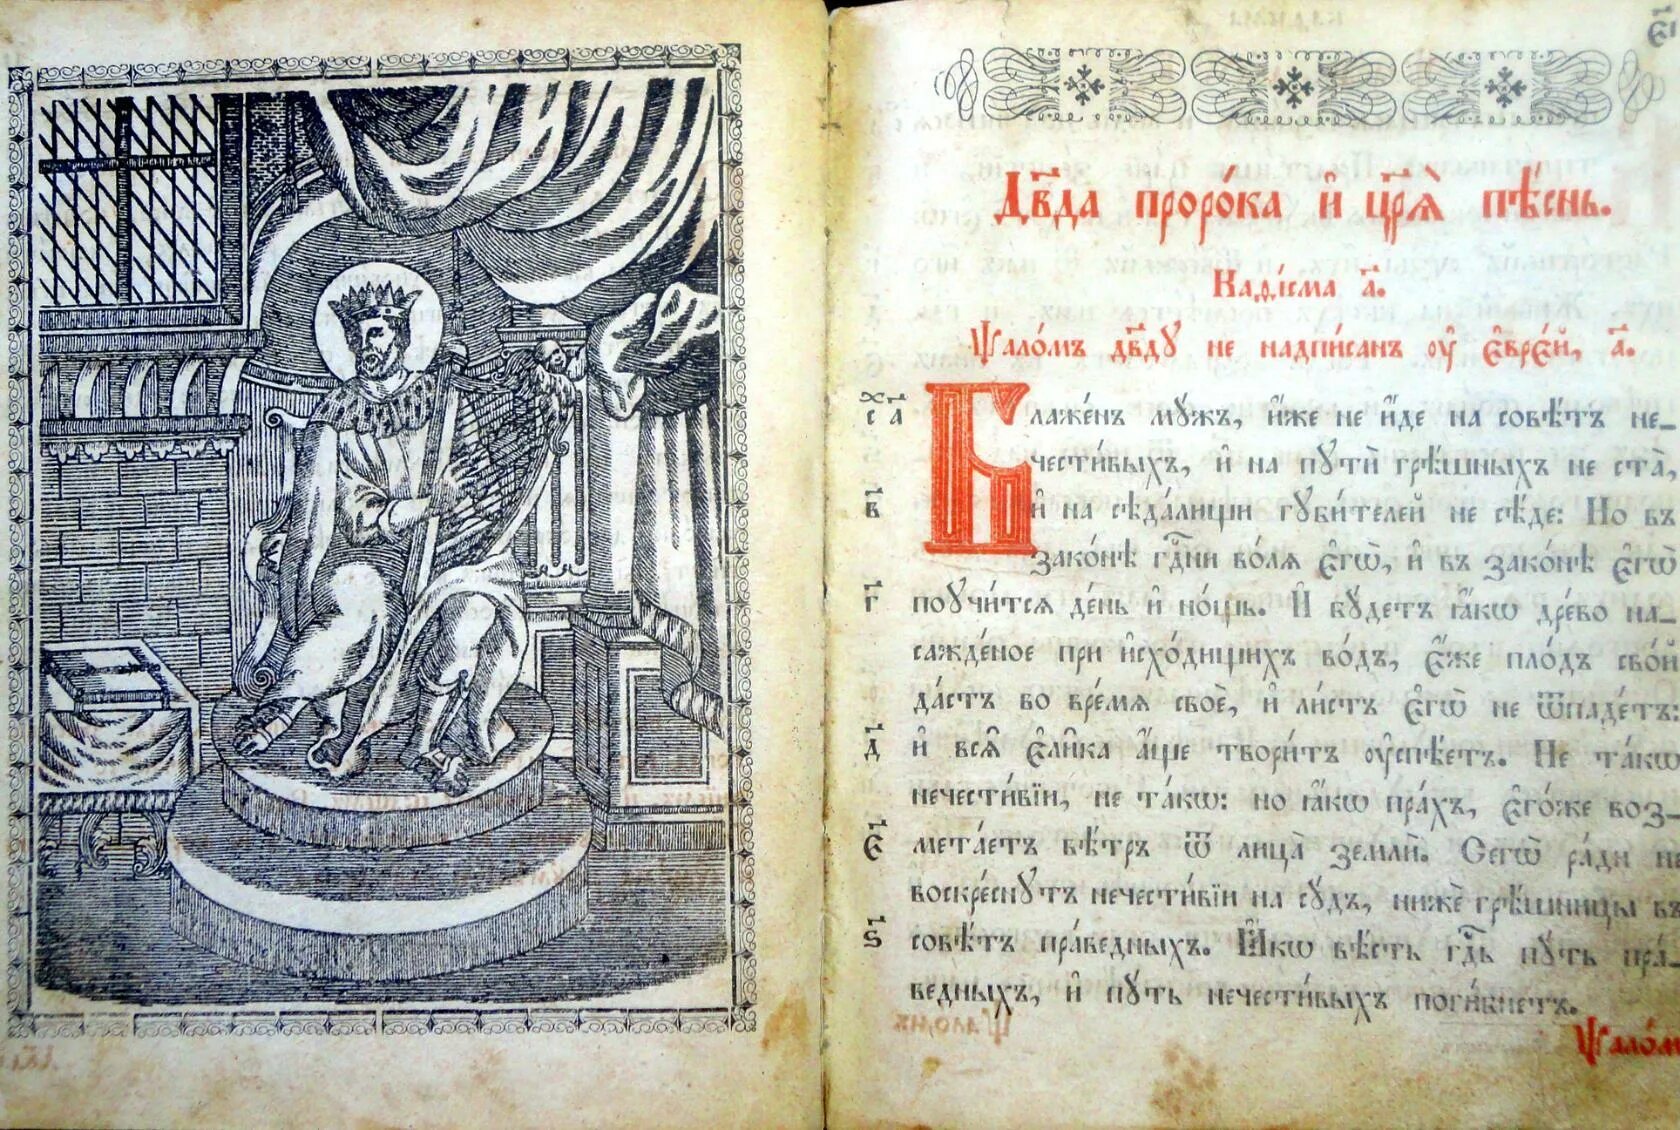 є҃і
Дв҃да проро́ка и҆ цр҃ѧ̀ пѣ́снь.
Каді́сма а҃.
Ѱало́мъ дв҃ду не надпи́санъ ᲂу҆ є҆врє́й, а҃.
сх҃ а҃ Блаже́нъ мꙋжъ, и҆́же не и҆́де на совѣ́тъ не-
чести́выхъ, и҆ на пꙋтѝ грѣ́шныхъ не ста̀,
в҃ и҆ на сѣда́лищи гꙋби́телей не сѣ́де: Но въ
зако́нѣ гдⷭ҇ни во́лѧ є҆гѡ̀, и҆ въ зако́нѣ є҆гѡ̀
г҃ поꙋчи́тсѧ де́нь и҆ но́щь. И҆ бꙋ́детъ ꙗ҆́кѡ дре́во на-
сажде́ное при и҆схо́дищихъ во́дъ, є҆́же пло́дъ сво́й
да́стъ во вре́мѧ своѐ, и҆ ли́стъ є҆гѡ̀ не ѿпаде́тъ:
д҃ и҆ всѧ̑ є҆ли́ка а҆́ще твори́тъ ᲂу҆спѣ́етъ. Не та́кѡ
нечести́вїи, не та́кѡ: но ꙗ҆́кѡ пра́хъ, є҆го́же воз-
є҃ мета́етъ вѣ́тръ ѿ лица̀ землѝ. Сегѡ̀ ра́ди не
воскре́снꙋтъ нечести́вїи на сꙋ́дъ, нижѐ грѣ́шницы въ
ѕ҃ совѣ́тъ пра́ведныхъ. Ꙗ҆́кѡ вѣ́сть гдⷭ҇ь пꙋ́ть пра́-
ведныхъ, и҆ пꙋ́ть нечести́выхъ поги́бнетъ.
Ѱало́м